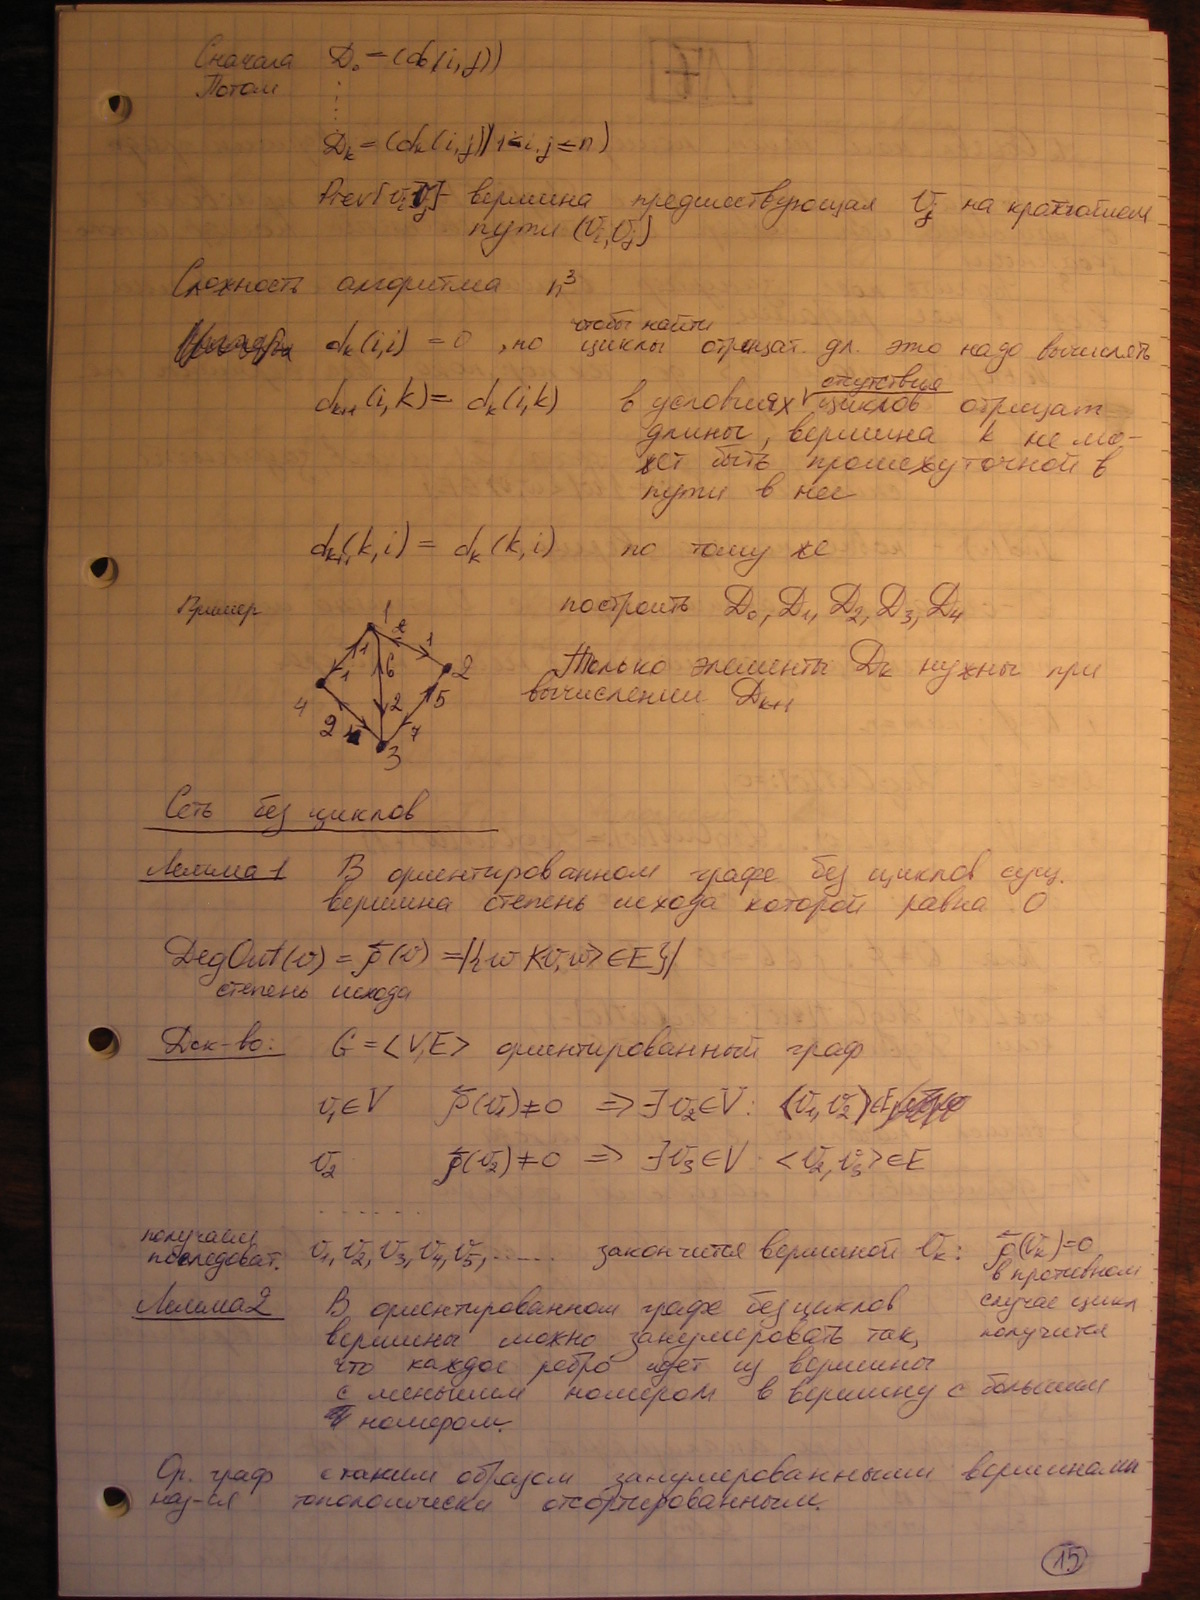 Сначала D₀ = (d₀(i,j))
Потом
Dₖ = (dₖ(i,j) | 1 ≤ i,j ≤ n)
Prev[vᵢ,vⱼ] - вершина предшествующая vⱼ на кратчайшем
пути (vᵢ,vⱼ)
Сложность алгоритма n³
чтобы найти
dₖ(i,i) = 0, но циклы отрицат. дл. это надо вычислять
отутствия
dₖ₊₁(i,k) = dₖ(i,k) в условиях циклов отрицат
длины, вершина k не мо-
жет быть промежуточной в
пути в нее
dₖ₊₁(k,i) = dₖ(k,i) по тому же
Пример построить D₀, D₁, D₂, D₃, D₄
1
2 1
1 6 2
1
Только элементы Dₖ нужны при
4 2 5
вычислении Dₖ₊₁
2 7
3
Сеть без циклов
Лемма 1 В ориентированном графе без циклов сущ.
вершина степень исхода которой равна 0
DegOut(v) = ρ⃖(v) = |{w | <v,w> ∈ E}|
степень исхода
Док-во: G = <V,E> ориентированный граф
v₁ ∈ V ρ⃖(v₁) ≠ 0 => ∃ v₂ ∈ V: <v₁,v₂> ∈ E
v₂ ρ⃖(v₂) ≠ 0 => ∃ v₃ ∈ V <v₂,v₃> ∈ E
.......
получаем
последоват. v₁, v₂, v₃, v₄, v₅, ...... закончится вершиной vₖ: ρ⃖(vₖ)=0
в противном
случае цикл
получится
Лемма 2 В ориентированном графе без циклов
вершины можно занумеровать так,
что каждое ребро идет из вершины
с меньшим номером в вершину с большим
номером.
Ор. граф с таким образом занумерованными вершинами
наз-ся топологически отсортированным.
15